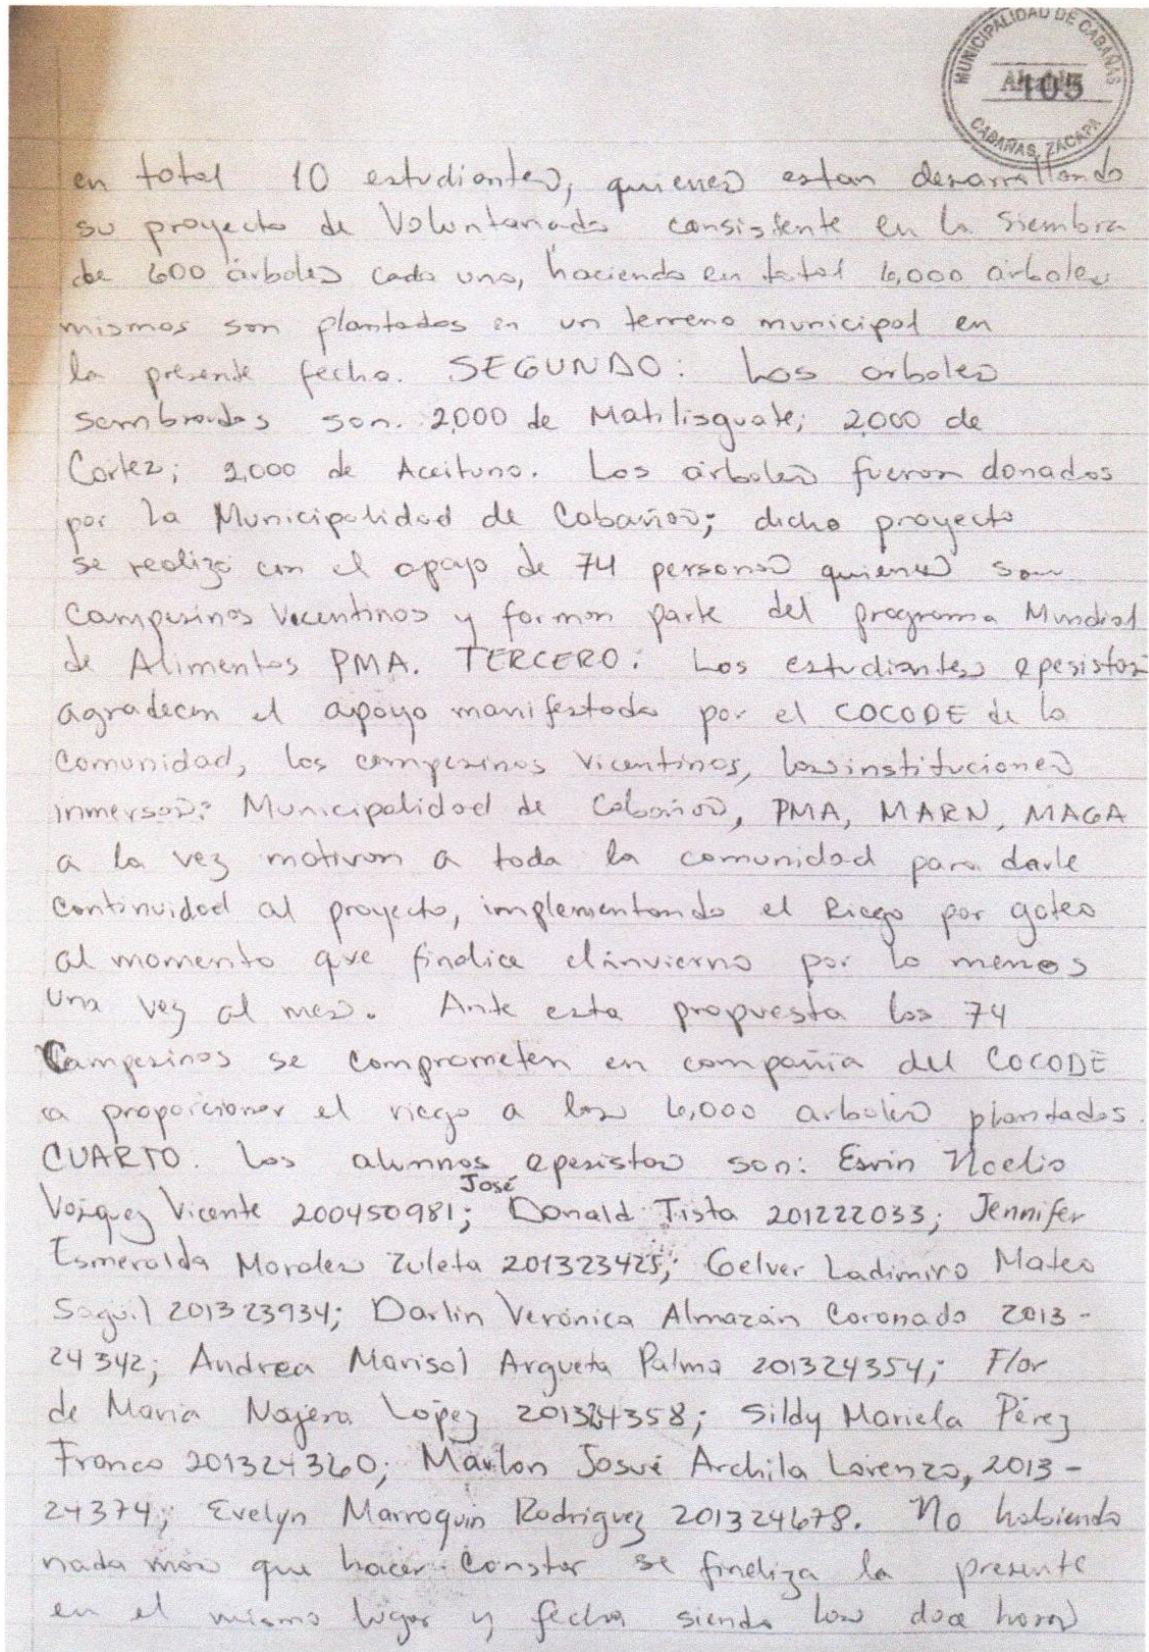 MUNICIPALIDAD DE CABAÑAS
Alcaldía
105
CABAÑAS, ZACAPA
en total 10 estudiantes, quienes estan desarrollando
su proyecto de Voluntariado consistente en la Siembra
de 600 árboles cada uno, haciendo en total 6,000 árboles
mismos son plantados en un terreno municipal en
la presente fecha. SEGUNDO: Los arboles
sembrados son. 2,000 de Matilisguate; 2,000 de
Cortez; 2,000 de Aceituno. Los árboles fueron donados
por la Municipalidad de Cabañas; dicho proyecto
se realizó con el apoyo de 74 personas quienes son
Campesinos Vicentinos y forman parte del programa Mundial
de Alimentos PMA. TERCERO: Los estudiantes epesistas
agradecen el apoyo manifestado por el COCODE de la
Comunidad, los campesinos Vicentinos, las instituciones
inmersas: Municipalidad de Cabañas, PMA, MARN, MAGA
a la vez motivan a toda la comunidad para darle
Continuidad al proyecto, implementando el Riego por goteo
al momento que finalice el invierno por lo menos
una vez al mes. Ante esta propuesta los 74
Campesinos se comprometen en compañia del COCODE
a proporcionar el riego a los 6,000 arboles plantados.
CUARTO. Los alumnos epesistas son: Esvin Noelio
Vásquez Vicente 200450981; José Donald Tista 201222033; Jennifer
Esmeralda Morales Zuleta 201323425; Gelver Ladimiro Mateo
Saguil 201323934; Darlin Verónica Almazán Coronado 2013-
24342; Andrea Marisol Argueta Palma 201324354; Flor
de Maria Najera López 201324358; Sildy Mariela Pérez
Franco 201324360; Marlon Josué Archila Lorenzo, 2013-
24374; Evelyn Marroquin Rodriguez 201324678. No habiendo
nada más que hacer Constar se finaliza la presente
en el mismo lugar y fecha siendo las doce horas